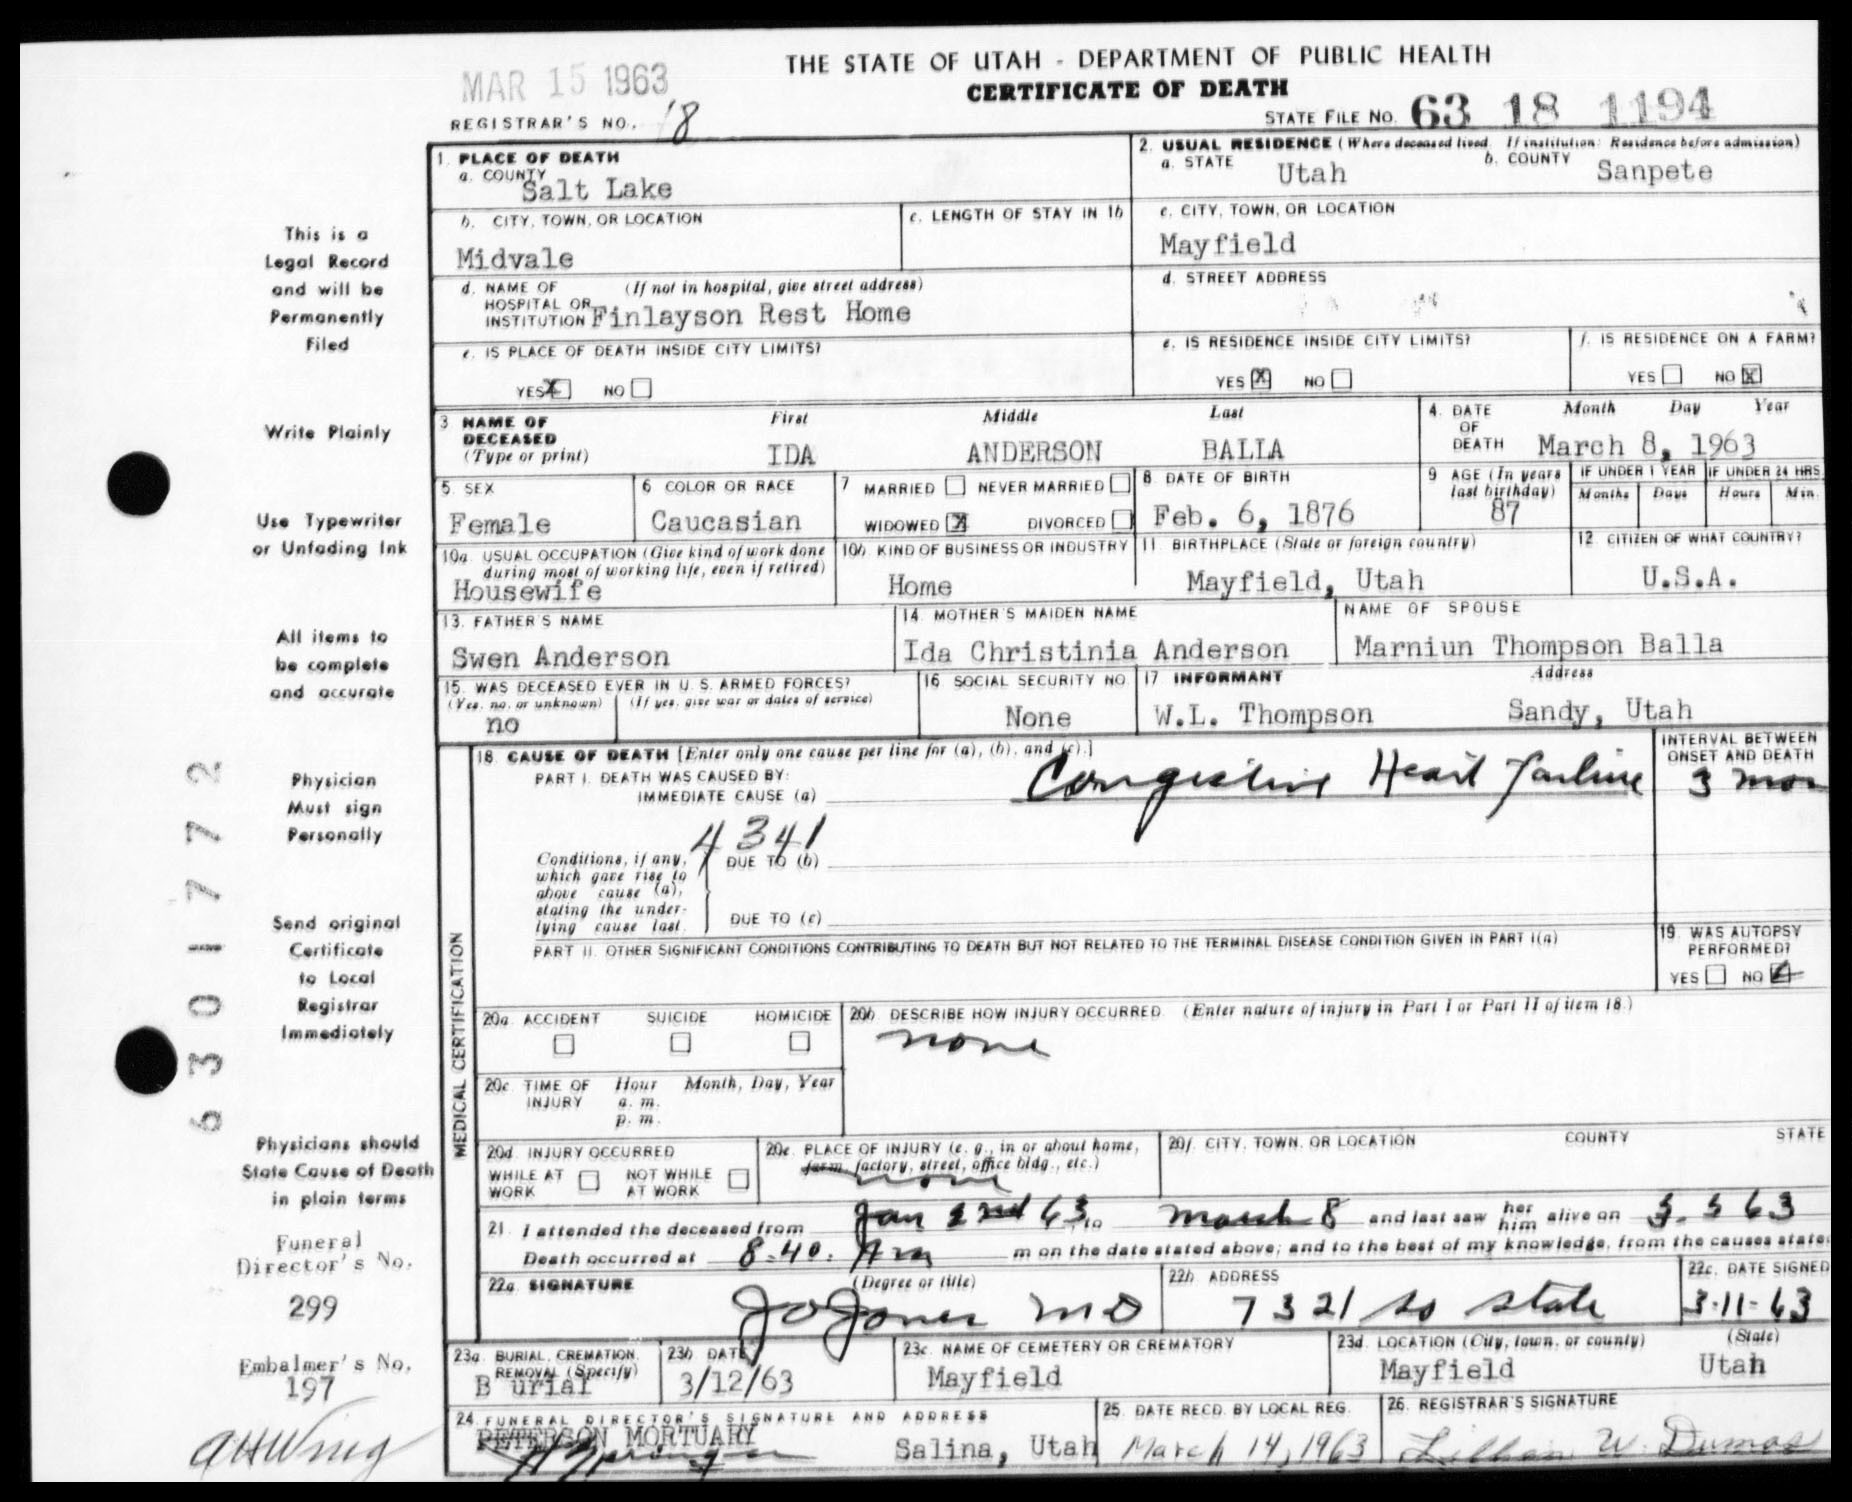 THE STATE OF UTAH - DEPARTMENT OF PUBLIC HEALTH
MAR 15 1963
CERTIFICATE OF DEATH
REGISTRAR'S NO. 18
STATE FILE NO. 63 18 1194
1. PLACE OF DEATH
a. COUNTY
Salt Lake
2. USUAL RESIDENCE (Where deceased lived. If institution: Residence before admission)
a. STATE Utah b. COUNTY Sanpete
b. CITY, TOWN, OR LOCATION
Midvale
c. LENGTH OF STAY IN 1b
c. CITY, TOWN, OR LOCATION
Mayfield
d. NAME OF (If not in hospital, give street address)
HOSPITAL OR
INSTITUTION Finlayson Rest Home
d. STREET ADDRESS
e. IS PLACE OF DEATH INSIDE CITY LIMITS?
YES X NO
e. IS RESIDENCE INSIDE CITY LIMITS?
YES X NO
f. IS RESIDENCE ON A FARM?
YES NO X
3 NAME OF
DECEASED
(Type or print)
First Middle Last
IDA ANDERSON BALLA
4. DATE
OF
DEATH
Month Day Year
March 8, 1963
5. SEX
Female
6 COLOR OR RACE
Caucasian
7 MARRIED NEVER MARRIED
WIDOWED X DIVORCED
8. DATE OF BIRTH
Feb. 6, 1876
9 AGE (In years
last birthday)
87
IF UNDER 1 YEAR
Months Days
IF UNDER 24 HRS.
Hours Min.
10a. USUAL OCCUPATION (Give kind of work done
during most of working life, even if retired)
Housewife
10b. KIND OF BUSINESS OR INDUSTRY
Home
11. BIRTHPLACE (State or foreign country)
Mayfield, Utah
12. CITIZEN OF WHAT COUNTRY?
U.S.A.
13. FATHER'S NAME
Swen Anderson
14. MOTHER'S MAIDEN NAME
Ida Christinia Anderson
NAME OF SPOUSE
Marniun Thompson Balla
15. WAS DECEASED EVER IN U. S. ARMED FORCES?
(Yes, no, or unknown) (If yes, give war or dates of service)
no
16 SOCIAL SECURITY NO.
None
17 INFORMANT Address
W.L. Thompson Sandy, Utah
MEDICAL CERTIFICATION
18. CAUSE OF DEATH [Enter only one cause per line for (a), (b), and (c).]
PART I. DEATH WAS CAUSED BY:
IMMEDIATE CAUSE (a) Congestive Heart Failure
INTERVAL BETWEEN
ONSET AND DEATH
3 mon
4341
Conditions, if any,
which gave rise to
above cause (a),
stating the under-
lying cause last.
DUE TO (b)
DUE TO (c)
PART II. OTHER SIGNIFICANT CONDITIONS CONTRIBUTING TO DEATH BUT NOT RELATED TO THE TERMINAL DISEASE CONDITION GIVEN IN PART I(a)
19. WAS AUTOPSY
PERFORMED?
YES NO
20a. ACCIDENT SUICIDE HOMICIDE
20b. DESCRIBE HOW INJURY OCCURRED. (Enter nature of injury in Part I or Part II of item 18.)
none
20c. TIME OF Hour Month, Day, Year
INJURY a. m.
p. m.
20d. INJURY OCCURRED
WHILE AT NOT WHILE
WORK AT WORK
20e. PLACE OF INJURY (e. g., in or about home,
farm, factory, street, office bldg., etc.)
none
20f. CITY, TOWN, OR LOCATION COUNTY STATE
21. I attended the deceased from Jan 2nd 63, to March 8 and last saw her him alive on 3. 5 63
Death occurred at 8:40. Am m on the date stated above; and to the best of my knowledge, from the causes state
22a. SIGNATURE (Degree or title)
J O Jones MD
22b. ADDRESS
7321 so state
22c. DATE SIGNED
3-11-63
23a. BURIAL, CREMATION,
REMOVAL (Specify)
B urial
23b. DATE
3/12/63
23c. NAME OF CEMETERY OR CREMATORY
Mayfield
23d. LOCATION (City, town, or county) (State)
Mayfield Utah
24. FUNERAL DIRECTOR'S SIGNATURE AND ADDRESS
PETERSON MORTUARY
Salina, Utah
25. DATE RECD. BY LOCAL REG.
March 14, 1963
26. REGISTRAR'S SIGNATURE
Lillian W. Dumas
This is a
Legal Record
and will be
Permanently
Filed
Write Plainly
Use Typewriter
or Unfading Ink
All items to
be complete
and accurate
Physician
Must sign
Personally
Send original
Certificate
to Local
Registrar
Immediately
Physicians should
State Cause of Death
in plain terms
Funeral
Director's No.
299
Embalmer's No.
197
6301772